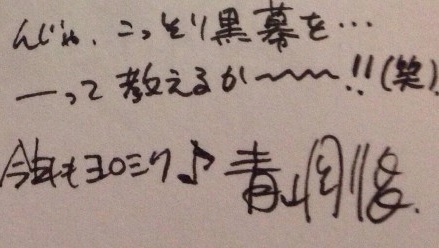 んじゃ、こっそり黒幕を…
ーって教えるか〜〜〜!!(笑)
今年もヨロシク♪ 青山剛昌